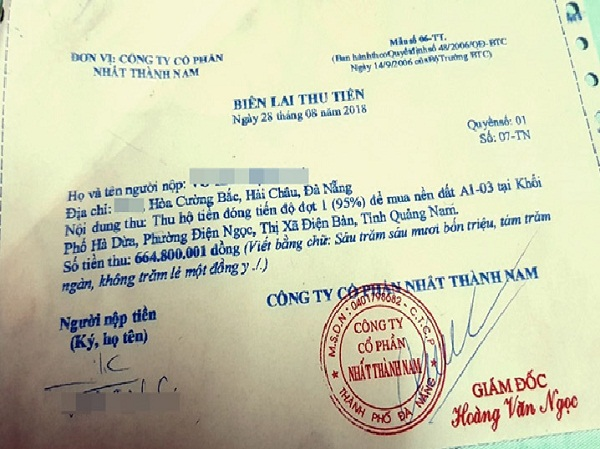 ĐƠN VỊ: CÔNG TY CỔ PHẦN
NHẤT THÀNH NAM
Mẫu số 06-TT.
(Ban hành theo Quyết định số 48/2006/QĐ-BTC
Ngày 14/9/2006 của Bộ Trưởng BTC)
BIÊN LAI THU TIỀN
Ngày 28 tháng 08 năm 2018
Quyển số: 01
Số: 07-TN
Họ và tên người nộp:
Địa chỉ: Hòa Cường Bắc, Hải Châu, Đà Nẵng
Nội dung thu: Thu hộ tiền đóng tiến độ đợt 1 (95%) để mua nền đất A1-03 tại Khối
Phố Hà Dừa, Phường Điện Ngọc, Thị Xã Điện Bàn, Tỉnh Quảng Nam.
Số tiền thu: 664.800.001 đồng (Viết bằng chữ: Sáu trăm sáu mươi bốn triệu, tám trăm
ngàn, không trăm lẻ một đồng y ./.)
CÔNG TY CỔ PHẦN NHẤT THÀNH NAM
Người nộp tiền
(Ký, họ tên)
M.S.D.N: 0401798682 - C.T.C.P
CÔNG TY
CỔ PHẦN
NHẤT THÀNH NAM
THÀNH PHỐ ĐÀ NẴNG
GIÁM ĐỐC
Hoàng Văn Ngọc